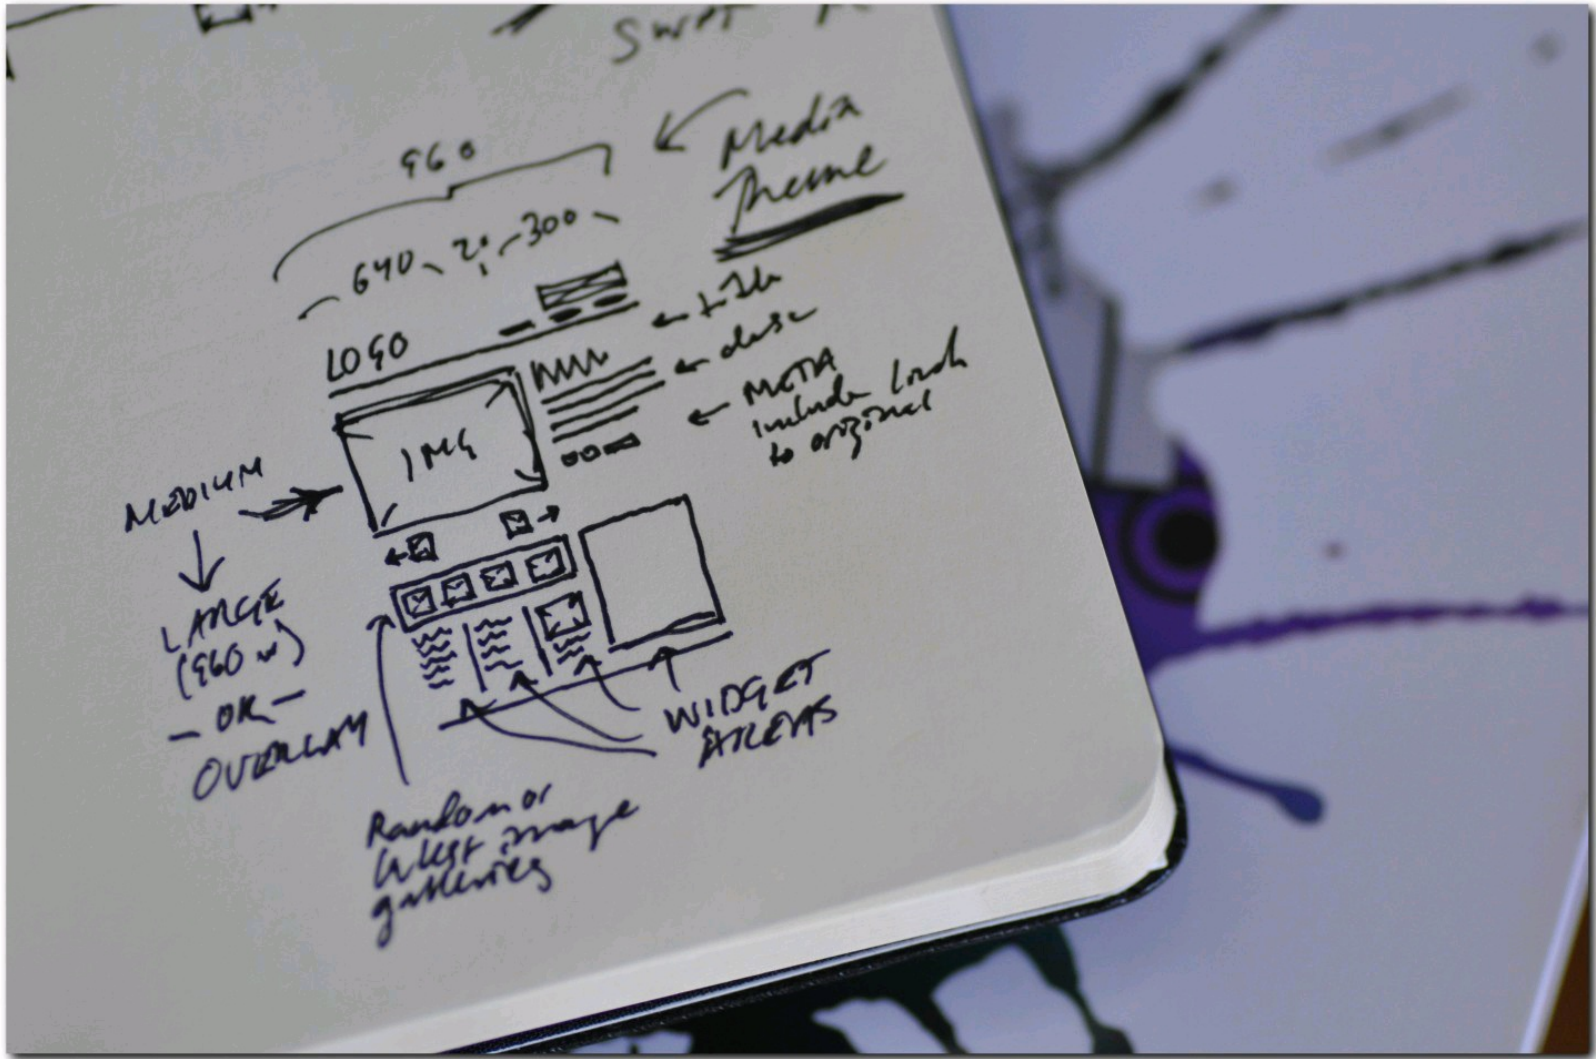 Media
Theme
960
640 20 300
LOGO
title
desc
META
include link
to original
IMG
MEDIUM
LARGE
(960 w)
- OR -
OVERLAY
WIDGET
AREAS
Random or
latest image
galleries